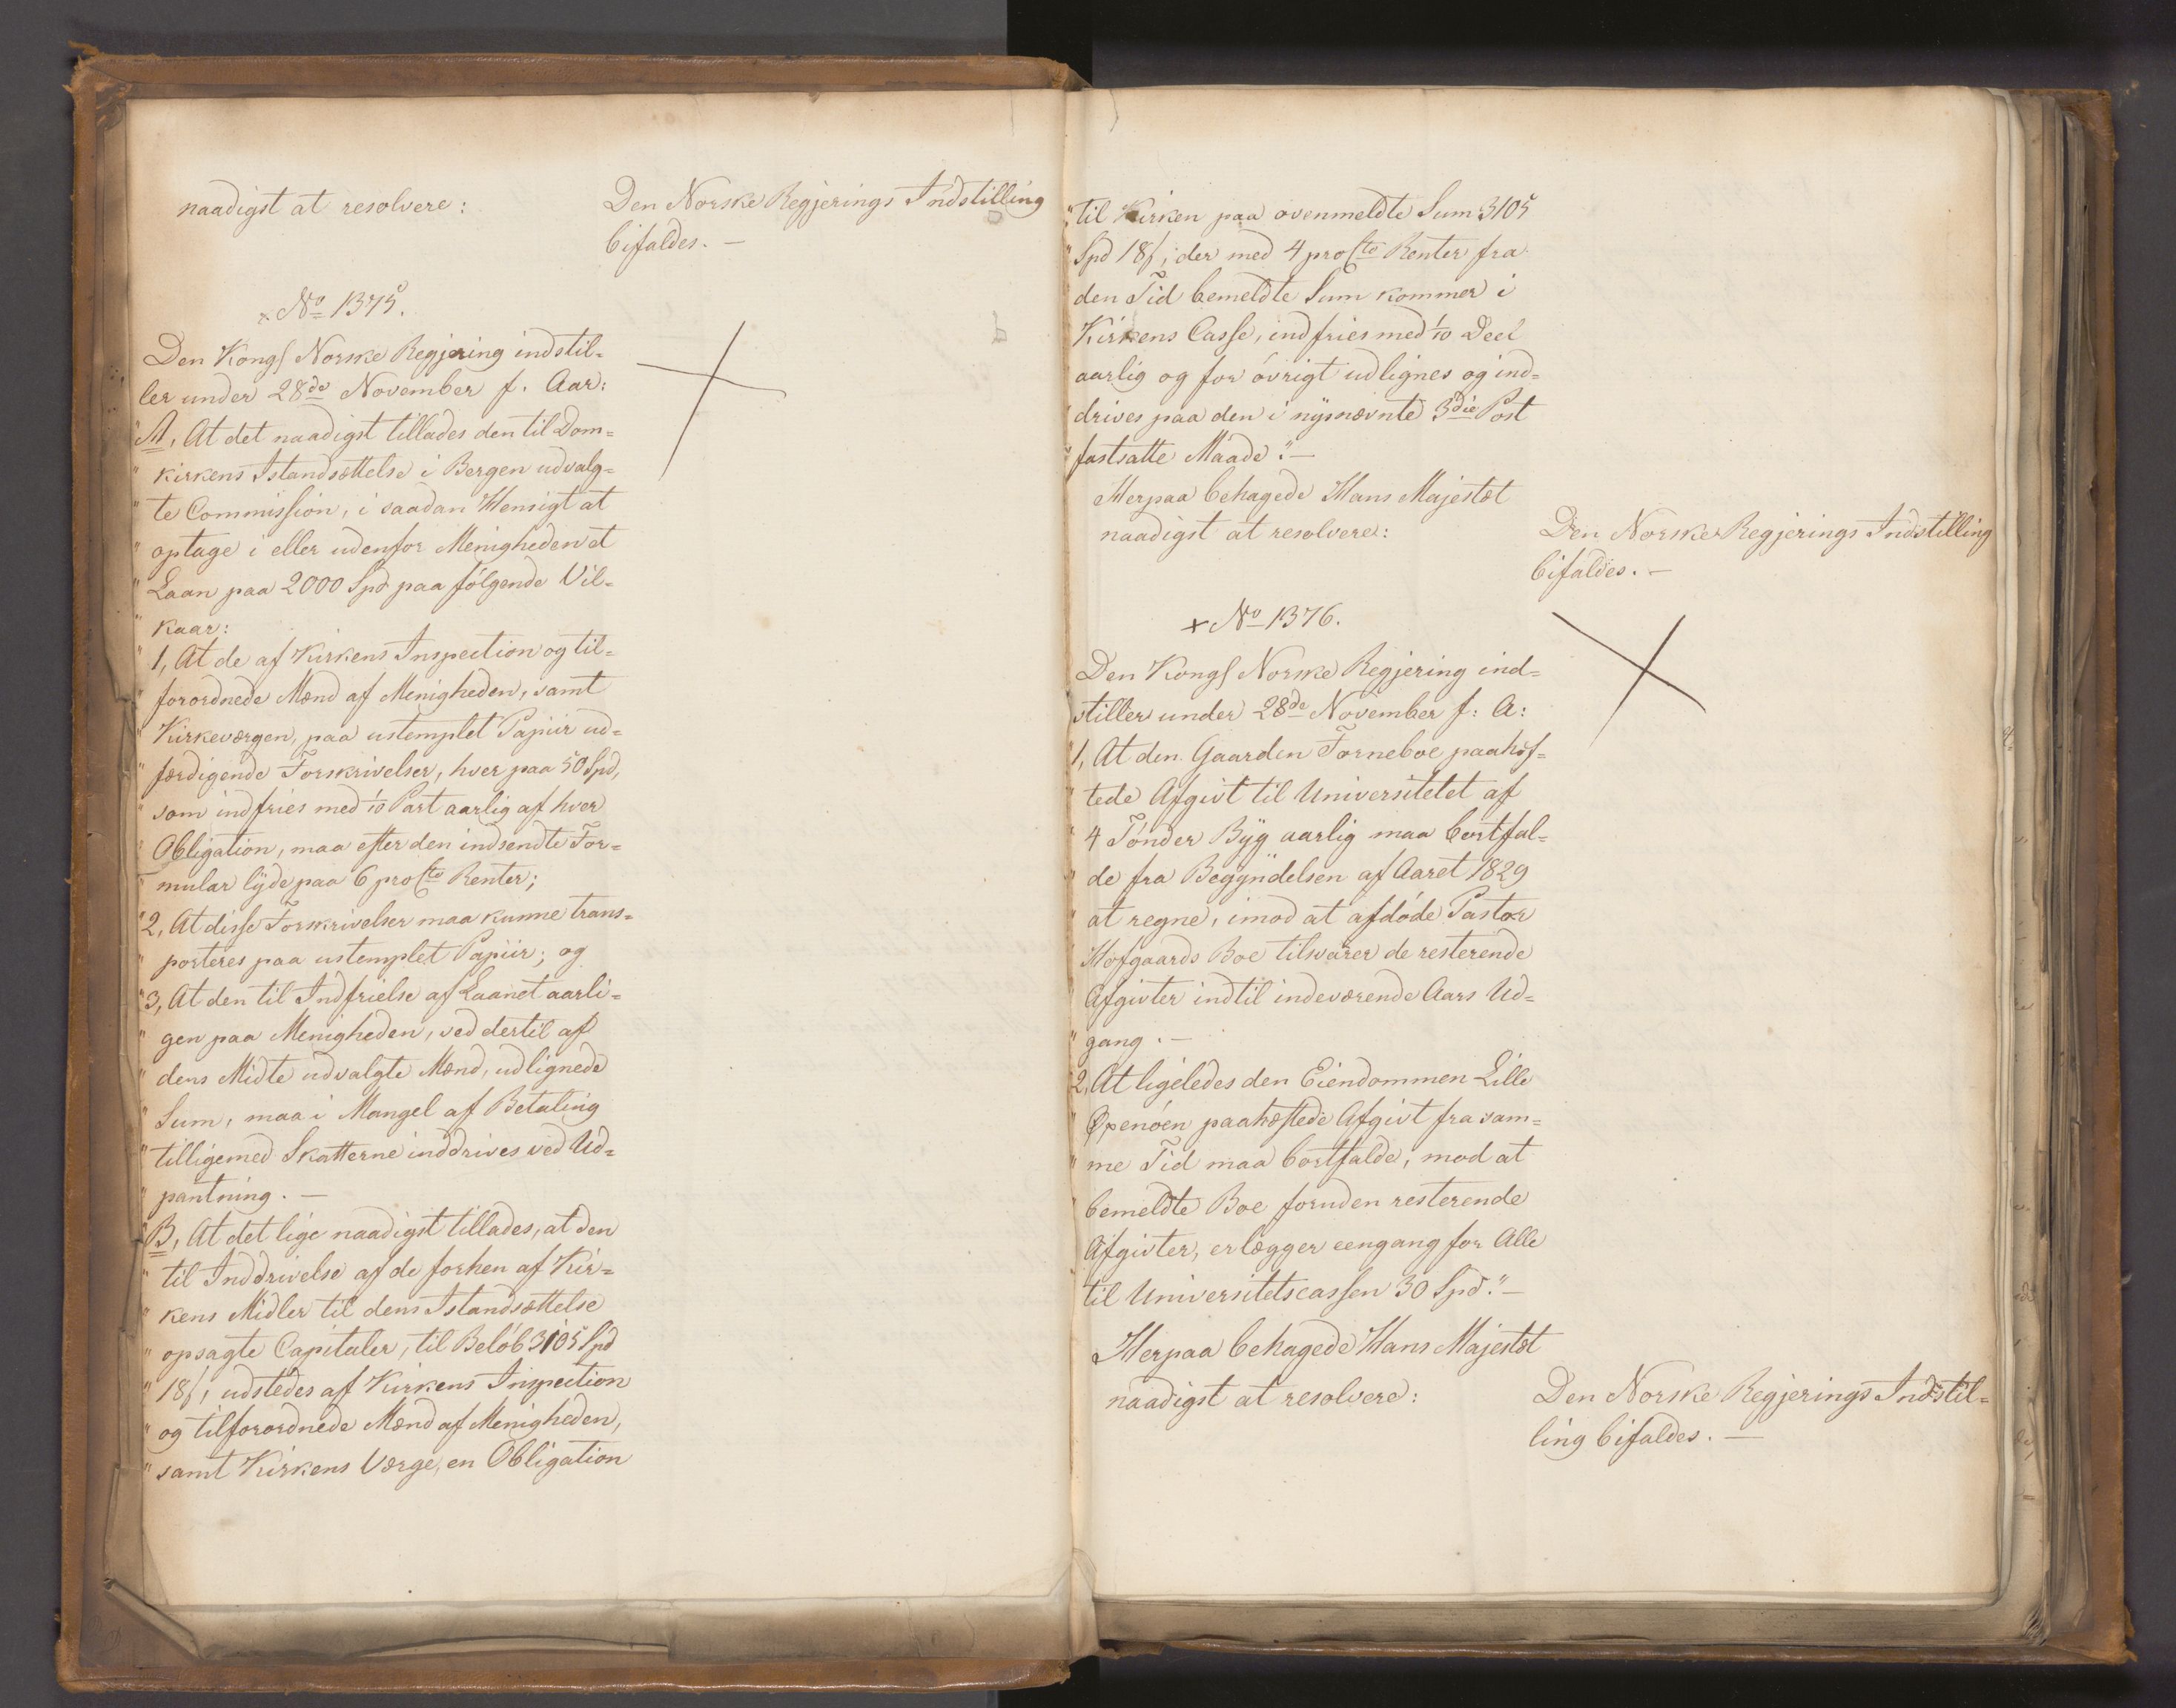 naadigst at resolvere:
Den Norske Regjerings Indstilling
bifaldes. —
× No 1375.
Den Kongl Norske Regjering indstil=
ler under 28de November f. Aar:
"A, At det naadigst tillades den til Dom=
" kirkens Istandsættelse i Bergen udvalg=
" te Commission, i saadan Hensigt at
" optage i eller udenfor Menigheden et
" Laan paa 2000 Spd paa følgende Vil=
" kaar:
" 1, At de af Kirkens Inspection og til=
" forordnede Mænd af Menigheden, samt
" Kirkeværgen, paa ustemplet Papiir ud=
" færdigende Forskrivelser, hver paa 50 Spd,
" som indfries med 1/10 Part aarlig af hver
" Obligation, maa efter den indsendte For=
" mular lyde paa 6 pro Cto Renter;
" 2, At disse Forskrivelser maa kunne trans=
" porteres paa ustemplet Papiir; og
" 3, At den til Indfrielse af Laanet aarli=
" gen paa Menigheden, ved dertil af
" dens Midte udvalgte Mænd, udlignede
" Sum, maa i Mangel af Betaling
" tilligemed Skatterne inddrives ved Ud=
" pantning. —
" B, At det lige naadigst tillades, at den
" til Inddrivelse af de forhen af Kir=
" kens Midler til dens Istandsættelse
" opsagte Capitaler, til Beløb 3105 Spd
" 18 ſ, udstedes af Kirkens Inspection
" og tilforordnede Mænd af Menigheden,
" samt Kirkens Værge, en Obligation
" til Kirken paa ovenmeldte Sum 3105
" Spd 18 ſ, der med 4 pro Cto Renter fra
den Tid bemeldte Sum kommer i
Kirkens Casse, indfries med 1/10 Deel
aarlig og for øvrigt udlignes og ind=
" drives paa den i nysnævnte 3die Post
" fastsatte Maade". —
Herpaa behagede Hans Majestæt
naadigst at resolvere:
Den Norske Regjerings Indstilling
bifaldes. —
× No 1376.
Den Kongl Norske Regjering ind=
stiller under 28de November f: A:
" 1, At den Gaarden Torneboe paahæf=
" tede Afgivt til Universitetet af
" 4 Tønder Byg aarlig maa bortfal=
" de fra Begyndelsen af Aaret 1829
" at regne, imod at afdøde Pastor
" Hofgaards Boe tilsvarer de resterende
" Afgivter indtil indeværende Aars Ud=
" gang. —
" 2, At ligeledes den Eiendommen Lille
" Øxenøen paahæftede Afgivt fra sam=
" me Tid maa bortfalde, mod at
" bemeldte Boe foruden resterende
" Afgivter, erlægger eengang for Alle
" til Universitetscassen 30 Spd". —
Herpaa behagede Hans Majestæt
naadigst at resolvere:
Den Norske Regjerings Indstil=
ling bifaldes. —